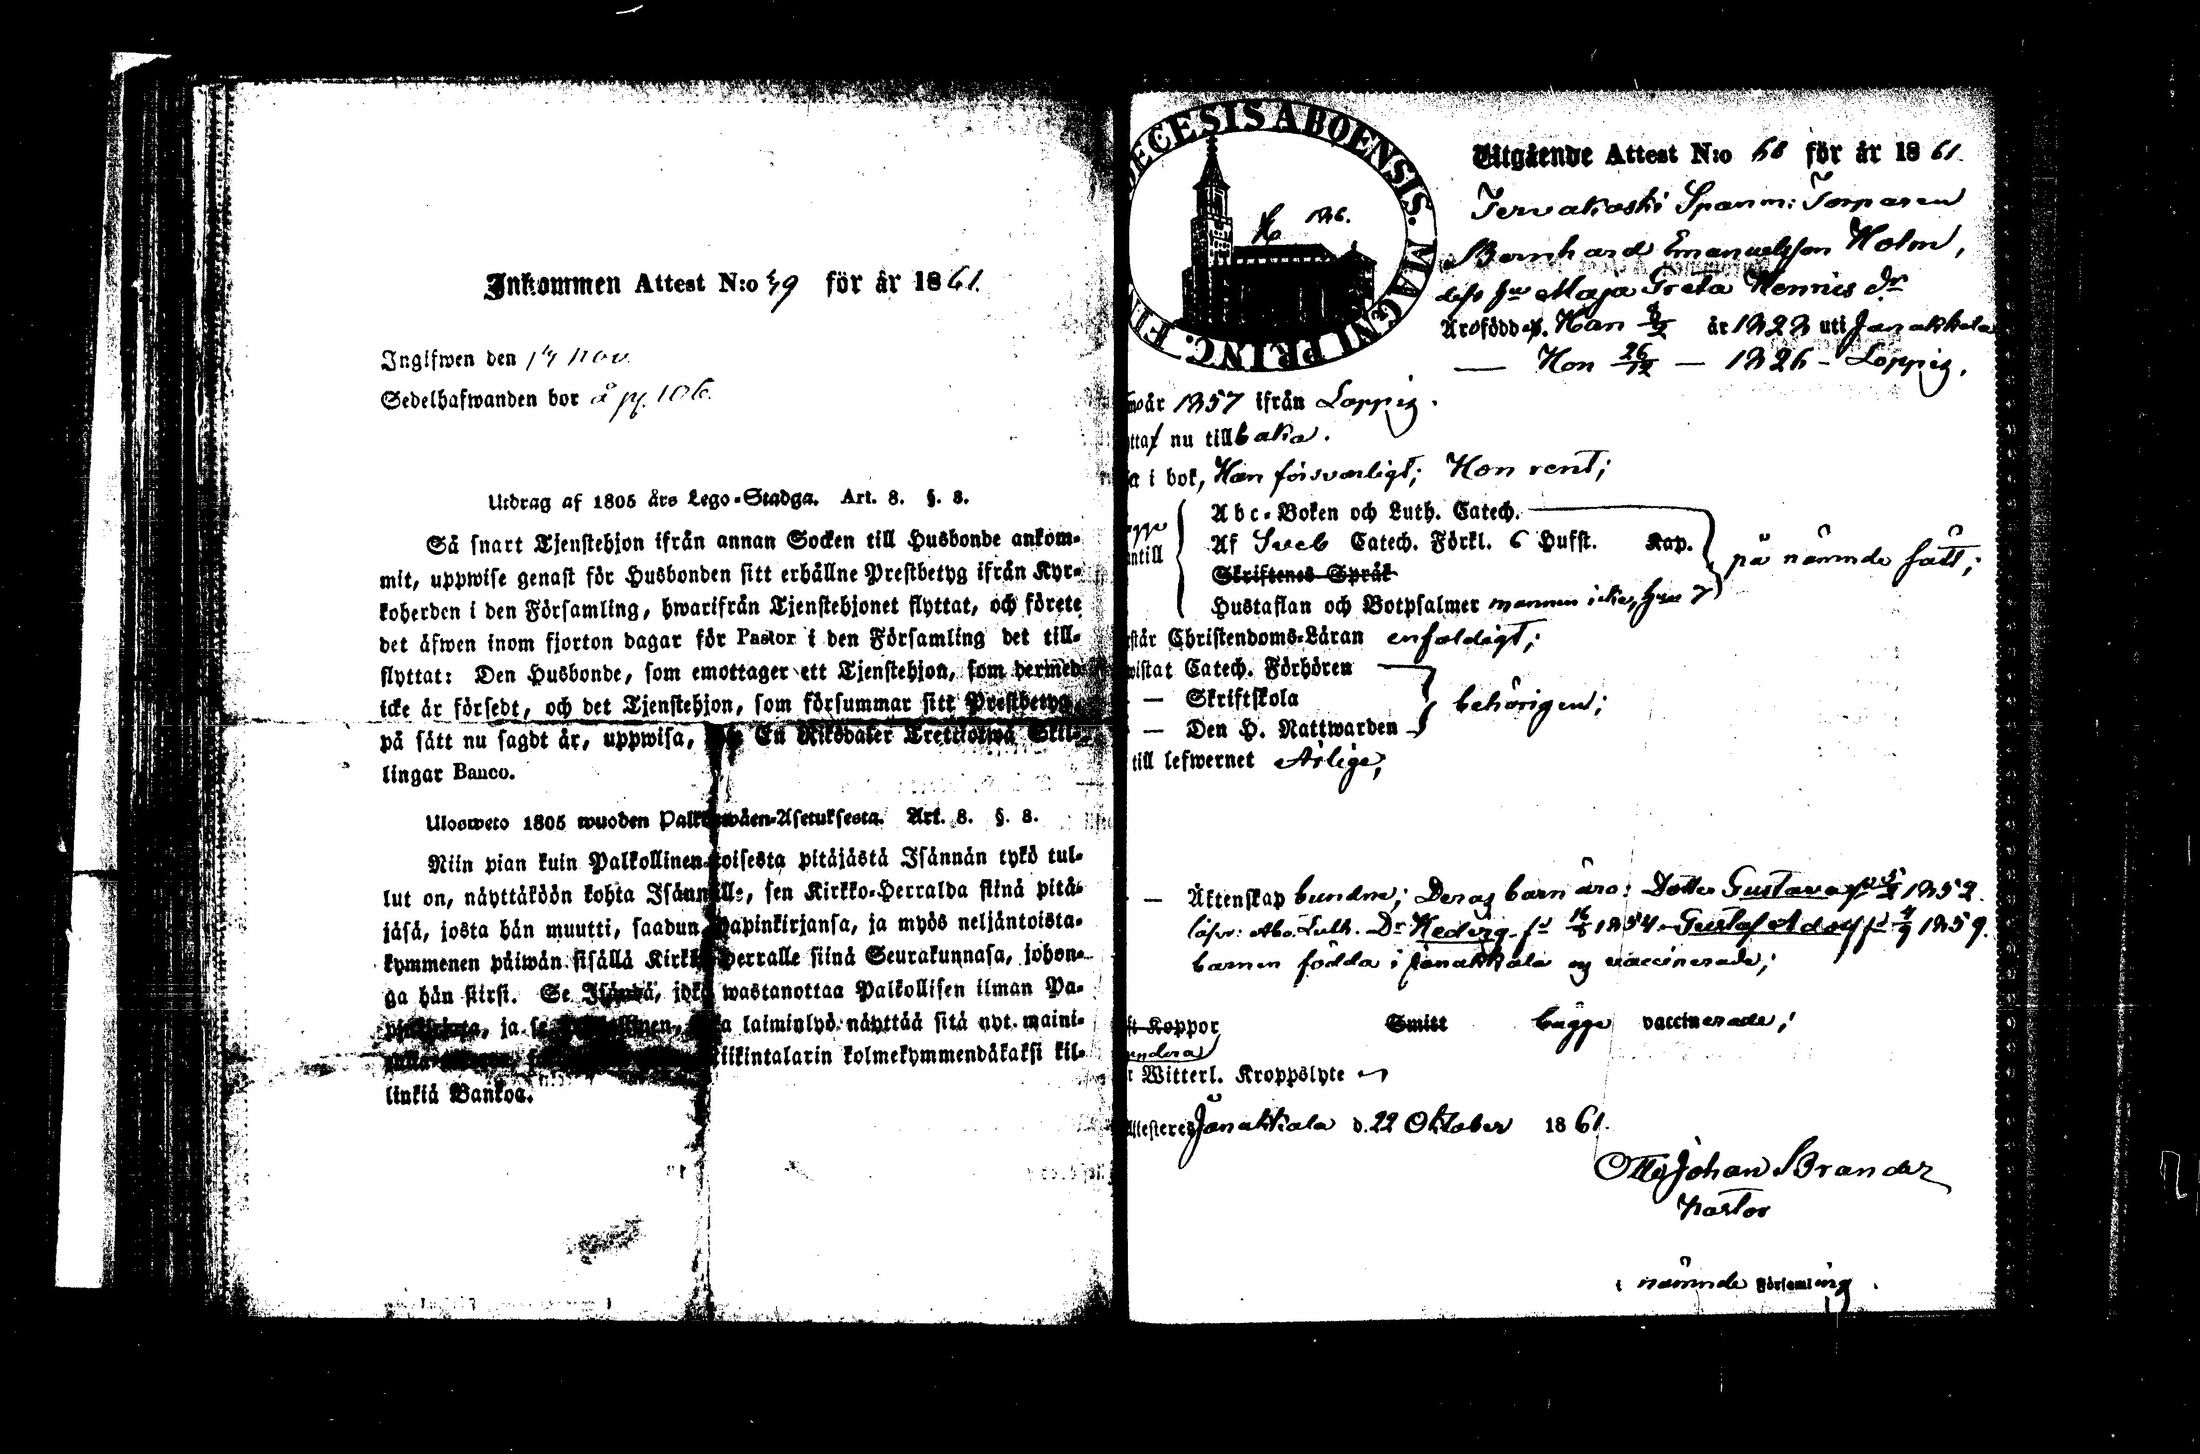 Inkommen Attest N:o 49 för år 1861.
Ingifwen den 14 nov.
Sedelhafwanden bor å pg. 106.
Utdrag af 1805 års Lego-Stadga. Art. 8. §. 8.
Så snart Tjenstehjon ifrån annan Socken till Husbonde ankom-
mit, uppwise genast för Husbonden sitt erhållne Prestbetyg ifrån Kyr-
koherden i den Församling, hwarifrån Tjenstehjonet flyttat, och förete
det äfwen inom fjorton dagar för Pastor i den Församling det till-
flyttat: Den Husbonde, som emottager ett Tjenstehjon, som dermed
icke är försedt, och det Tjenstehjon, som försummar sitt Prestbetyg,
på sätt nu sagdt är, uppwisa, En Riksdaler Trettiotwå Skil-
lingar Banco.
Uloosweto 1805 wuoden Palkkowäen-Asetuksesta. Art. 8. §. 8.
Niin pian kuin Palkollinen toisesta pitäjästä Isännän tykö tul-
lut on, näyttäköön kohta Isännälle, sen Kirkko-Herralda siinä pitä-
jäsä, josta hän muutti, saadun papinkirjansa, ja myös neljäntoista-
kymmenen päiwän sisällä Kirkko-Herralle siinä Seurakunnasa, johon-
ga hän siirsi. Se Isändä, joka wastanottaa Palkollisen ilman Pa-
pinkirjata, ja se Palkollinen, joka laiminlyö näyttää sitä nyt maini-
riikintalarin kolmekymmendäkaksi kil-
linkiä Bankoa.
DECESIS ABOENSIS. MAGNI PRINC. FIN
186.
Utgående Attest N:o 68 för år 1861.
Tervakoski Spanm: Torparen
Bernhard Emanuelsson Holm,
dess hu Maja Greta Henrics dr
Äro födde. Han 8/2 år 1823 uti Janakkala
— Hon 26/12 — 1826 - Loppis.
år 1857 ifrån Loppis.
nu tillbaka.
a i bok, Han försvarligt; Hon rent;
Abc-Boken och Luth. Catech.
Af Sveb Catech. Förkl. 6 Hufst. Kap.
på nämnde sätt;
ntill
Skriftenes Språk
Hustaflan och Botpsalmer mannen icke, hon
står Christendoms-Läran enfaldigt;
wistat Catech. Förhören
— Skriftskola
behörigen;
— Den H. Nattwarden
till lefwernet Ärlige;
— Äktenskap bundne; Deras barn äro: Dotter Gustava 1852.
Hedvig fd 16/5 1854 - Gustaf Adolf fd 4/9 1859.
barnen födda i Janakkala og vaccinerade;
Koppor Smitt bägge vaccinerade;
Witterl. Kroppslyte
Attesteres Janakkala d. 22 Oktober 1861.
Otto Johan Brander
Pastor
i nämnde Församling